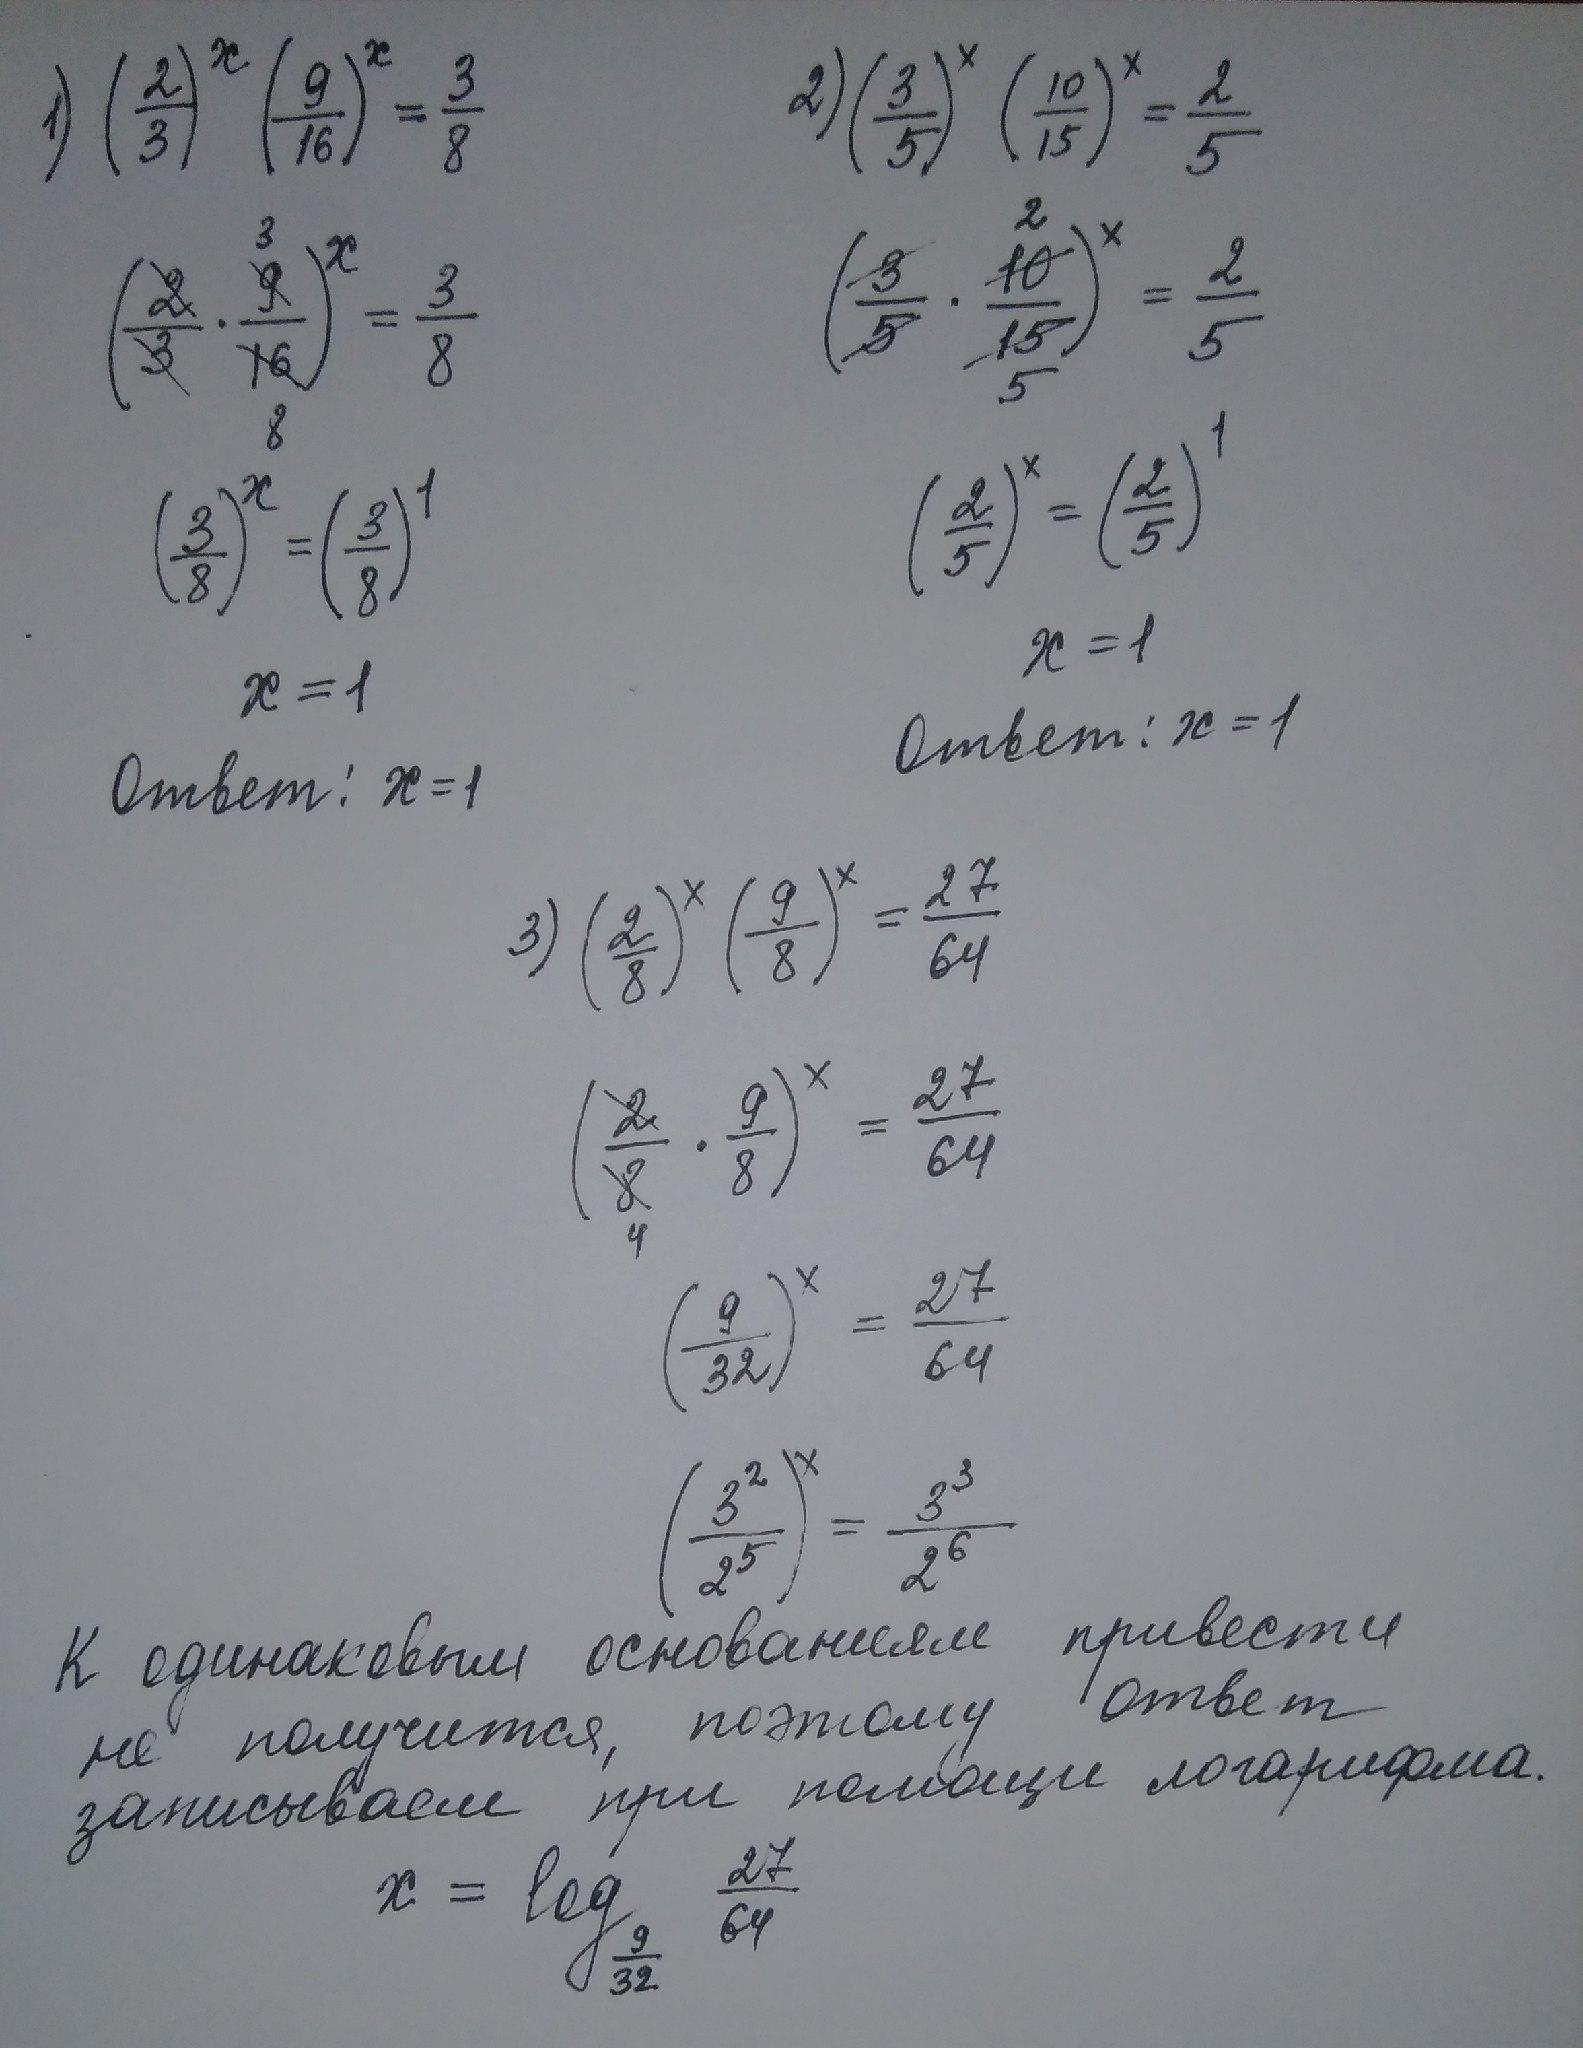 1) (2/3)^x (9/16)^x = 3/8
(2/3 · 9/16)^x = 3/8
3
8
(3/8)^x = (3/8)^1
x = 1
Ответ: x = 1
2) (3/5)^x (10/15)^x = 2/5
(3/5 · 10/15)^x = 2/5
2
5
(2/5)^x = (2/5)^1
x = 1
Ответ: x = 1
3) (2/8)^x (9/8)^x = 27/64
(2/8 · 9/8)^x = 27/64
4
(9/32)^x = 27/64
(3^2/2^5)^x = 3^3/2^6
К одинаковым основаниям привести
не получится, поэтому ответ
записываем при помощи логарифма.
x = log_{9/32} 27/64